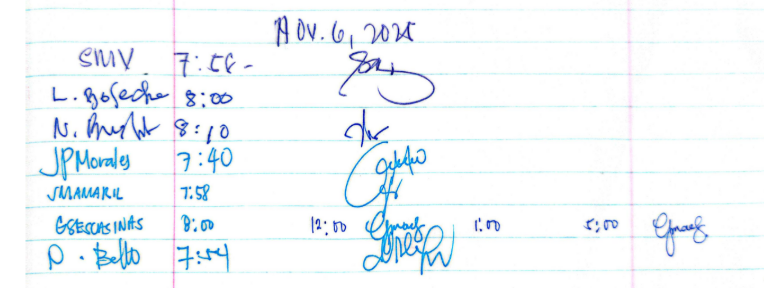 Nov. 6, 2025
SMV 7:58 -
L. 8:00
N. 8:10
JPMorales 7:40
JMAMARIL 7:58
GSESCASINAS 8:00 12:00 1:00 5:00
D. Bello 7:54